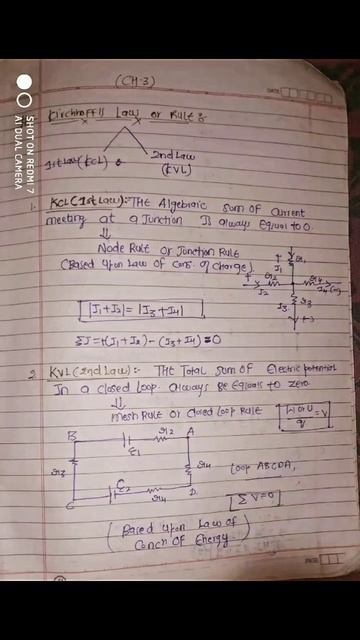 (CH-3)
DATE
Kirchhoff's Law or Rules
1st Law (KCL)
2nd Law
(KVL)
1. KCL (1st Law):- The Algebraic sum of current
meeting at a Junction Is always Equal to 0.
⇓
Node Rule or Junction Rule
(Based upon Law of Cons. of Charge)
I1
r2
I2
I3
r3
(-)
|I1+I2| = |I3+I4|
ΣI = +(I1+I2) - (I3+I4) = 0
2. KVL (2nd Law):- The Total sum of Electric potential
In a closed loop always be Equals to zero.
⇓
Mesh Rule or Closed loop Rule
W or U/q = V
B r2 A
E1
r3 r4 loop ABCDA,
C E2 r4 D
ΣV=0
(Based upon Law of
Concn Of Energy)
PAGE
SHOT ON REDMI 7
AI DUAL CAMERA